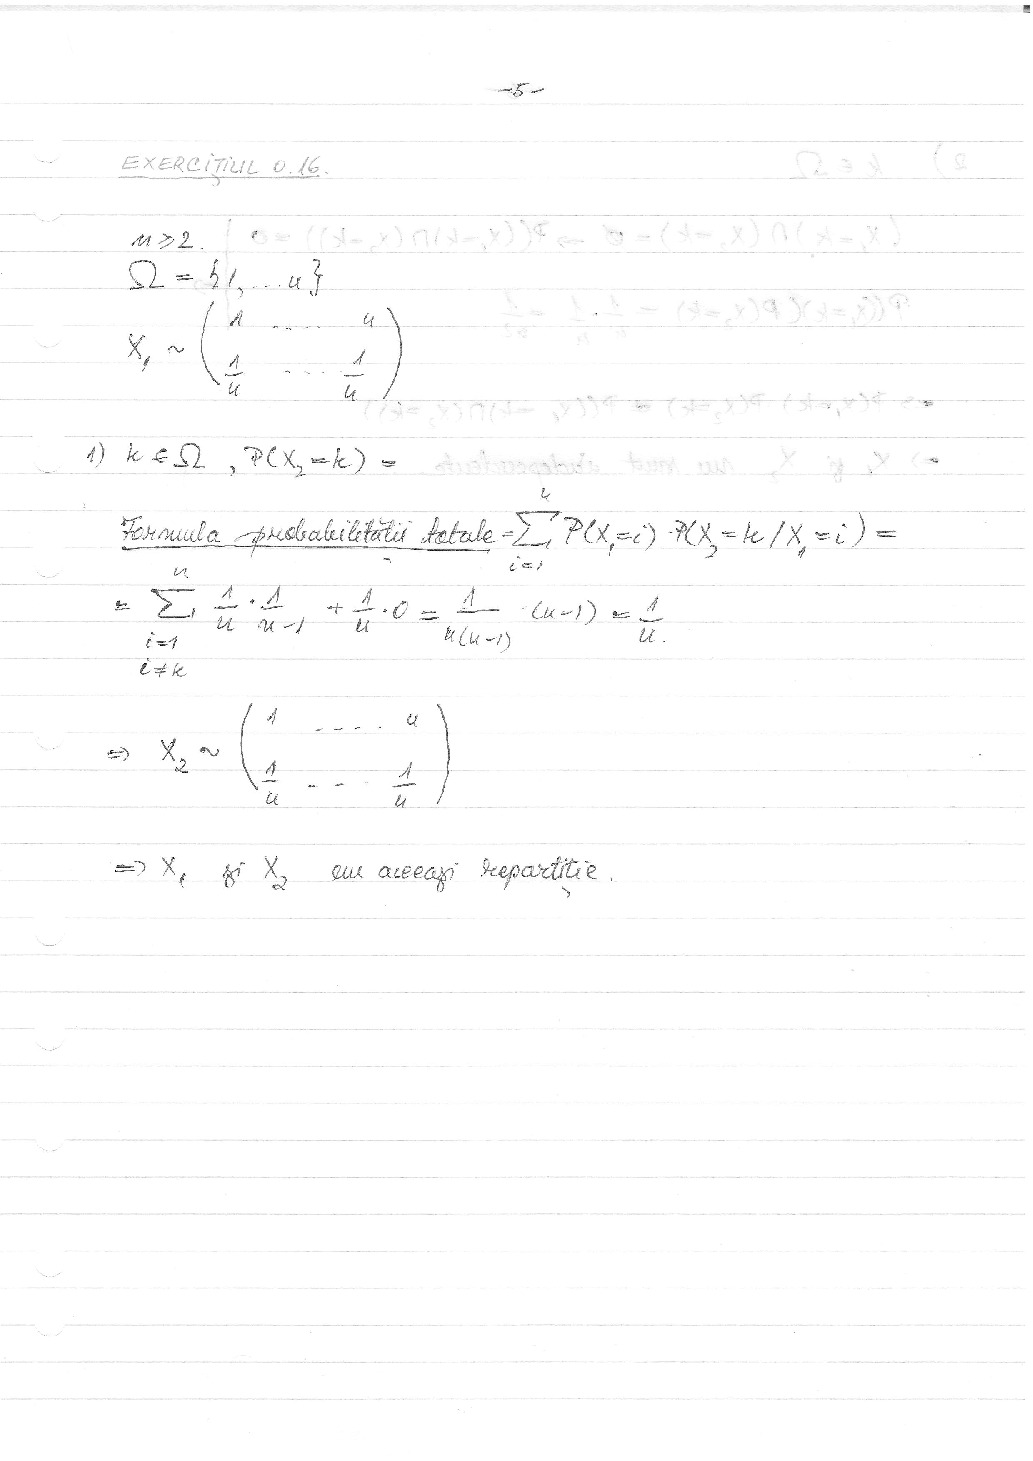 -5-
EXERCIȚIUL 0.16.
n ≥ 2.
Ω = {1, ... n}
X₁ ~ ( 1 .... n
1/n .... 1/n )
1) k ∈ Ω, P(X₂=k) =
Formula probabilității totale = ∑_{i=1}^{n} P(X₁=i) · P(X₂=k / X₁=i) =
= ∑_{i=1, i≠k}^{n} 1/n · 1/(n-1) + 1/n · 0 = 1/(n(n-1)) · (n-1) = 1/n.
⇒ X₂ ~ ( 1 ..... n
1/n .... 1/n )
⇒ X₁ și X₂ au aceeași repartiție.